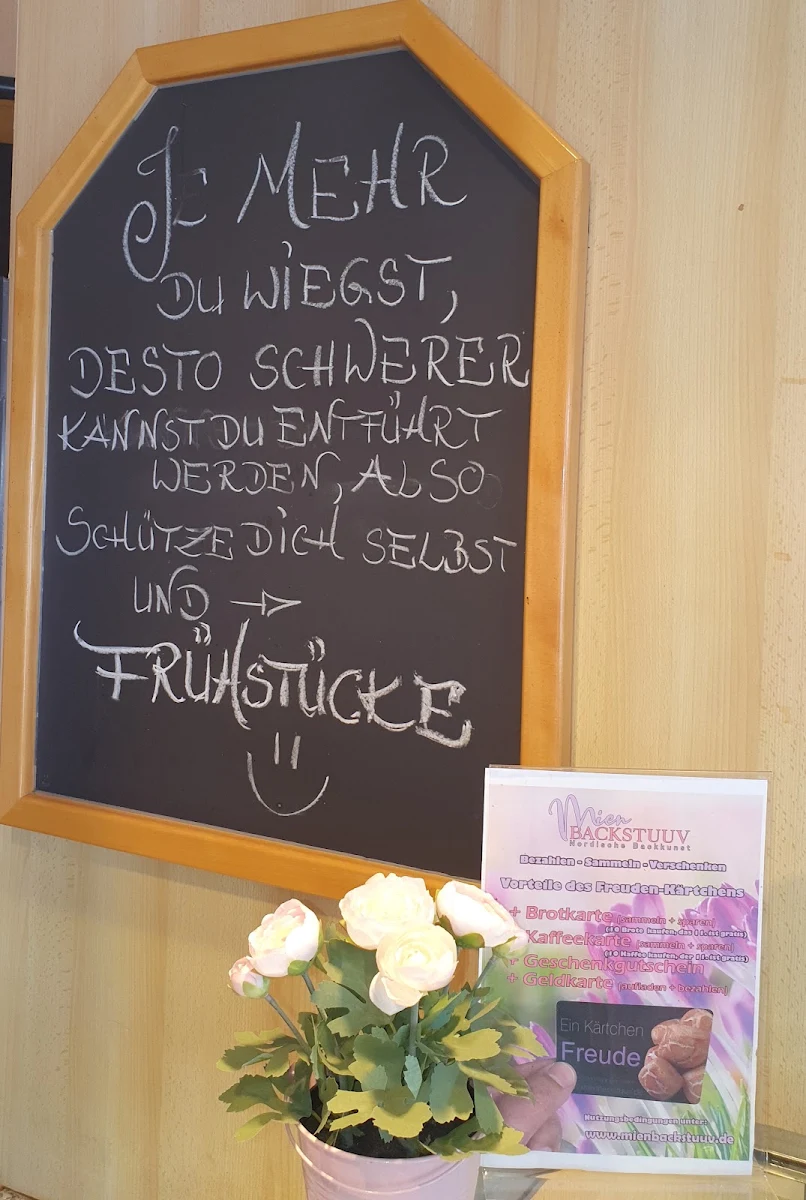 JE MEHR
DU WIEGST,
DESTO SCHWERER
KANNST DU ENTFÜHRT
WERDEN, ALSO
SCHÜTZE DICH SELBST
UND →
FRÜHSTÜCKE
Mien
BACKSTUUV
Nordische Backkunst
Bezahlen - Sammeln - Verschenken
Vorteile des Freuden-Kärtchens
+ Brotkarte (sammeln + sparen)
(10 Brote kaufen, das 11. ist gratis)
Kaffeekarte (sammeln + sparen)
(10 Kaffee kaufen, der 11. ist gratis)
+ Geschenkgutschein
+ Geldkarte (aufladen + bezahlen)
Ein Kärtchen
Freude
Nutzungsbedingungen unter:
www.mienbackstuuv.de